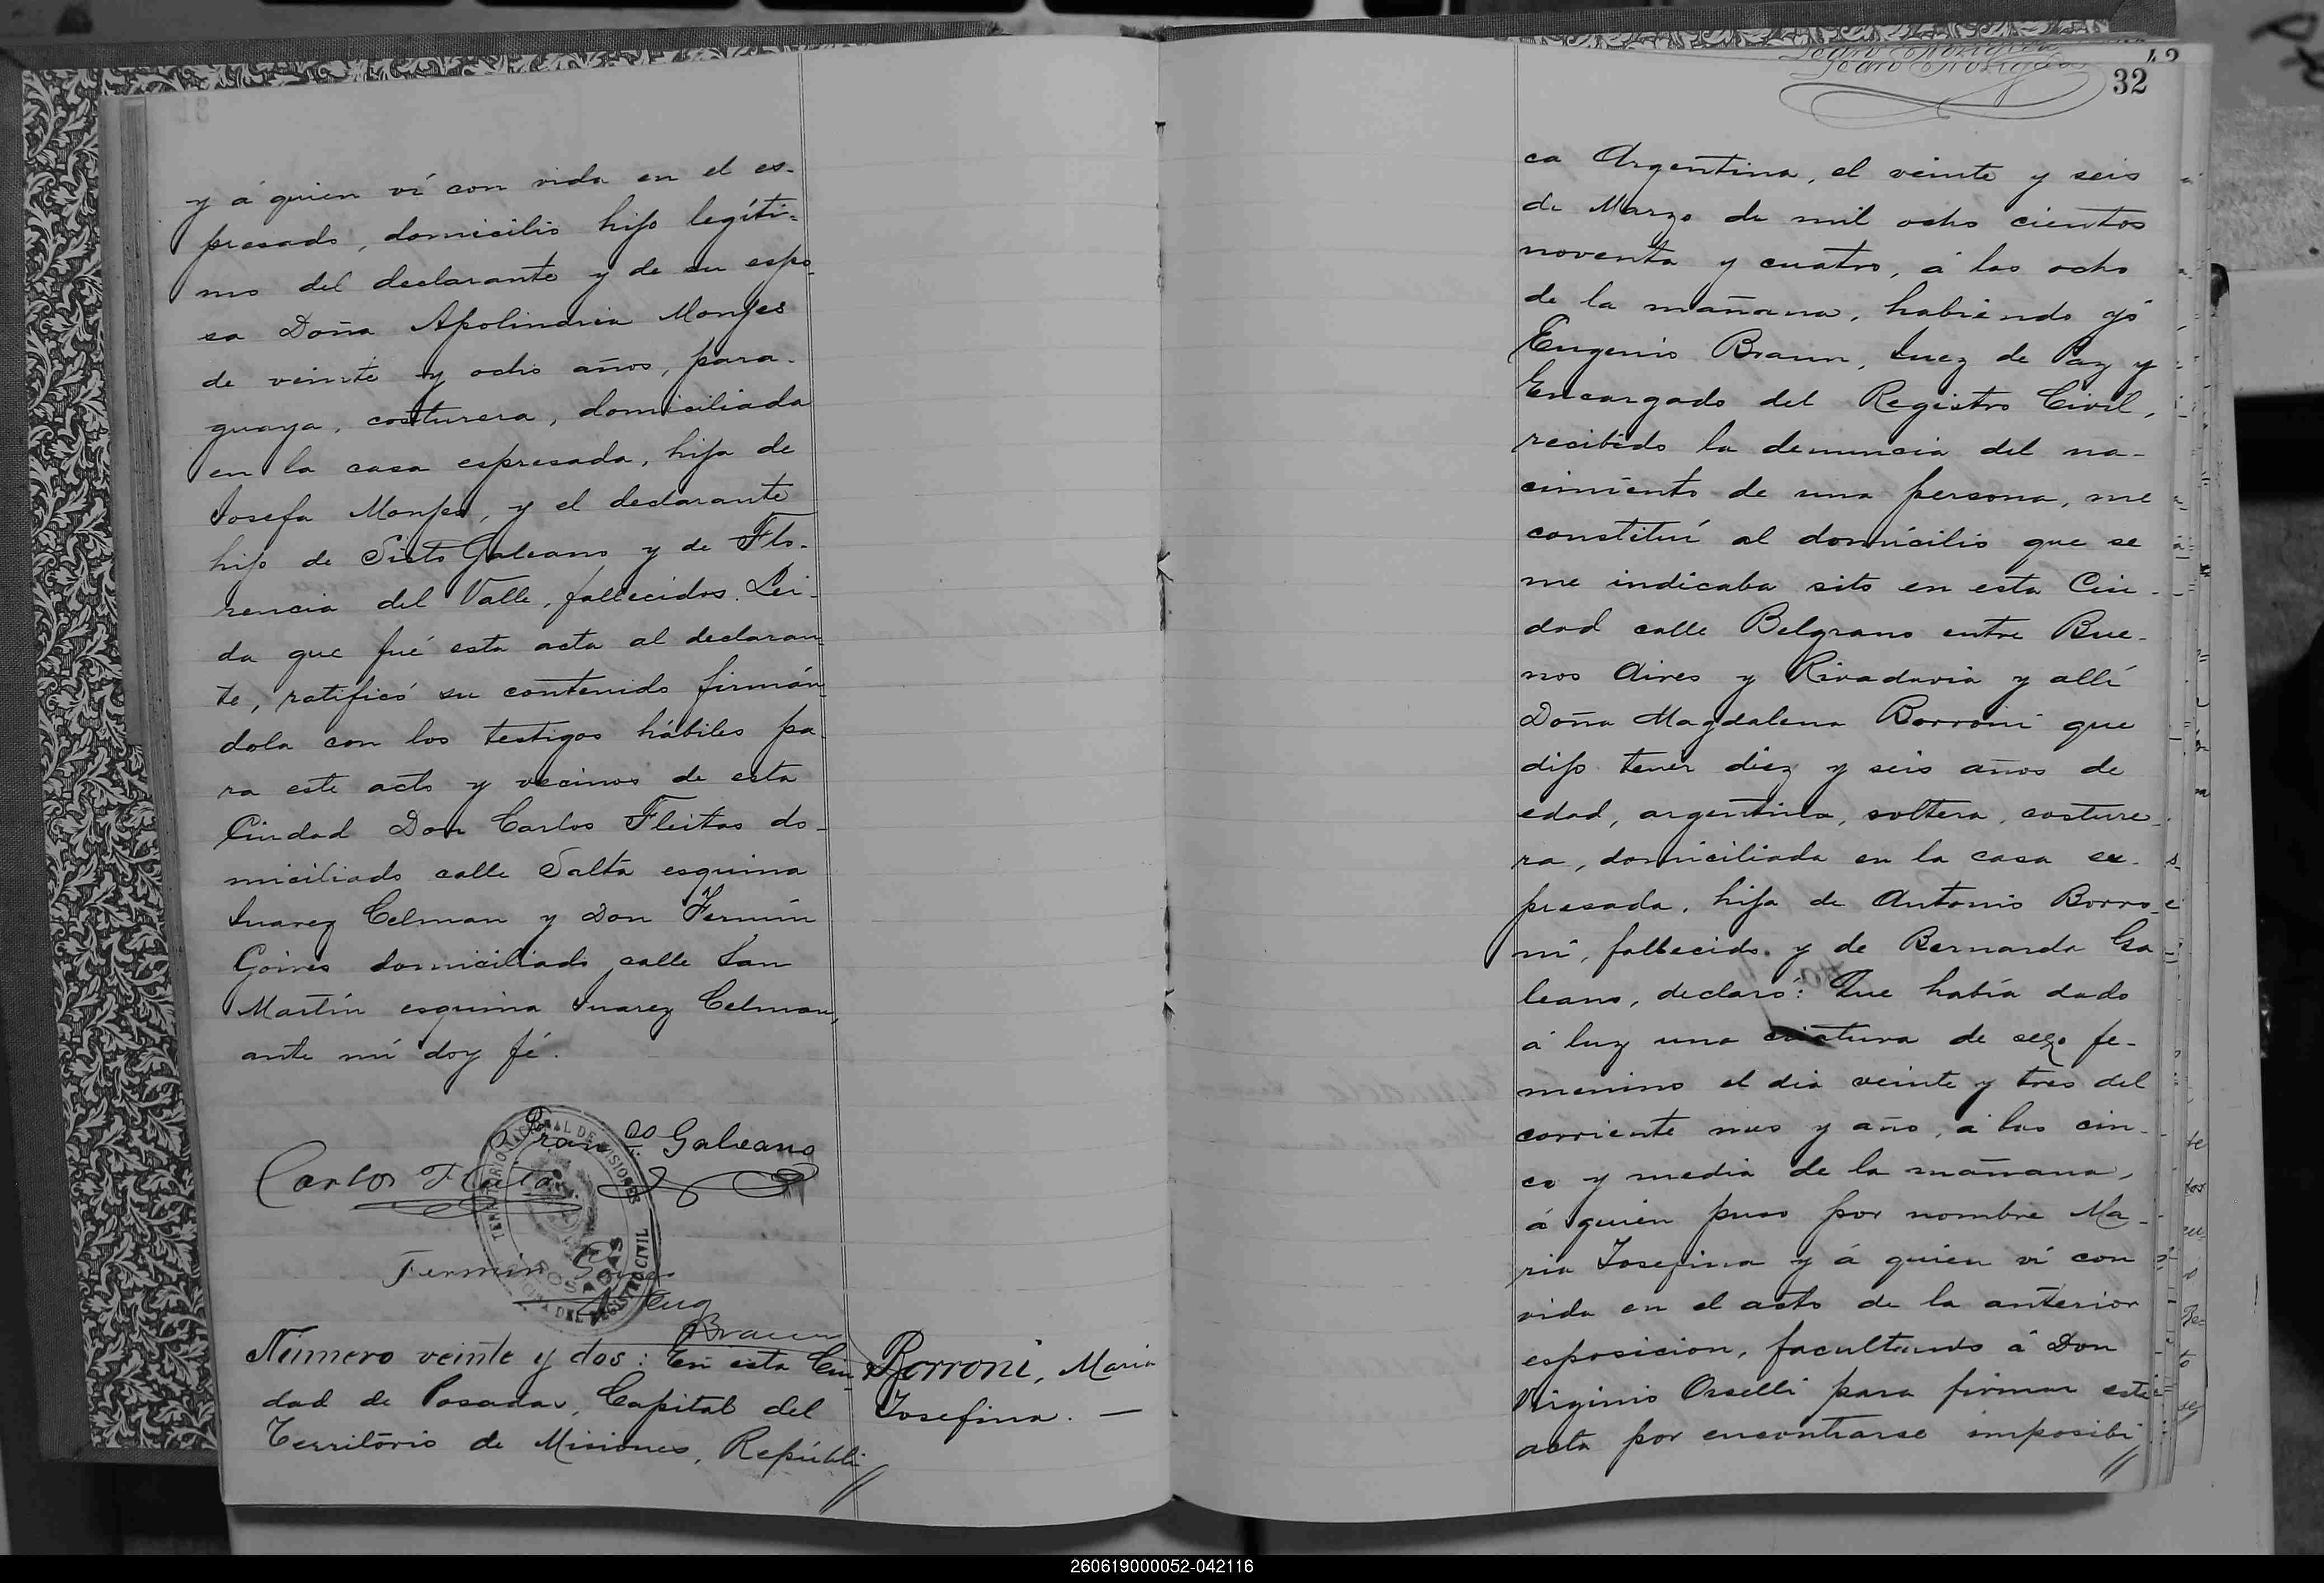 y á quien ví con vida en el es-
presado, domicilio hijo legíti-
mo del declarante y de su espo-
sa Doña Apolinaria Monjes
de veinte y ocho años, para-
guaya, costurera, domiciliada
en la casa espresada, hija de
Josefa Monjes, y el declarante
hijo de Sisto Galeano y de Flo-
rencia del Valle, fallecidos. Lei-
da que fué esta acta al declaran-
te, ratificó su contenido firmán-
dola con los testigos hábiles pa-
ra este acto y vecinos de esta
Ciudad Don Carlos Fleitas do-
miciliado calle Salta esquina
Juarez Celman y Don Fermín
Goires domiciliado calle San
Martín esquina Juarez Celman,
ante mí doy fé.
Franco Galeano
Carlos Fleitas
Fermin
TERRITORIO NACIONAL DE MISIONES
POSADAS
OFICINA DEL REGISTRO CIVIL
Eug
Braun
Número veinte y dos: En esta Ciu-
dad de Posadas, Capital del
Territorio de Misiones, Repúbli
Borroni, Maria
Josefina. —
32
ca Argentina, el veinte y seis
de Marzo de mil ocho cientos
noventa y cuatro, á las ocho
de la mañana, habiendo yó
Eugenio Braun, Juez de Paz y
Encargado del Registro Civil,
recibido la denuncia del na-
cimiento de una persona, me
constituí al domicilio que se
me indicaba sito en esta Ciu-
dad calle Belgrano entre Bue-
nos Aires y Rivadavia y allí
Doña Magdalena Borroni que
dijo tener diez y seis años de
edad, argentina, soltera, costure-
ra, domiciliada en la casa es-
presada, hija de Antonio Borro-
ni, fallecido y de Bernarda Ga
leano, declaró: Que había dado
á luz una criatura de sexo fe-
menino el dia veinte y tres del
corriente mes y año, á las cin-
co y media de la mañana,
á quien puso por nombre Ma-
ria Josefina y á quien ví con
vida en el acto de la anterior
esposicion, facultando á Don
Virginio Orselli para firmar este
acta por encontrarse imposibi
260619000052-042116